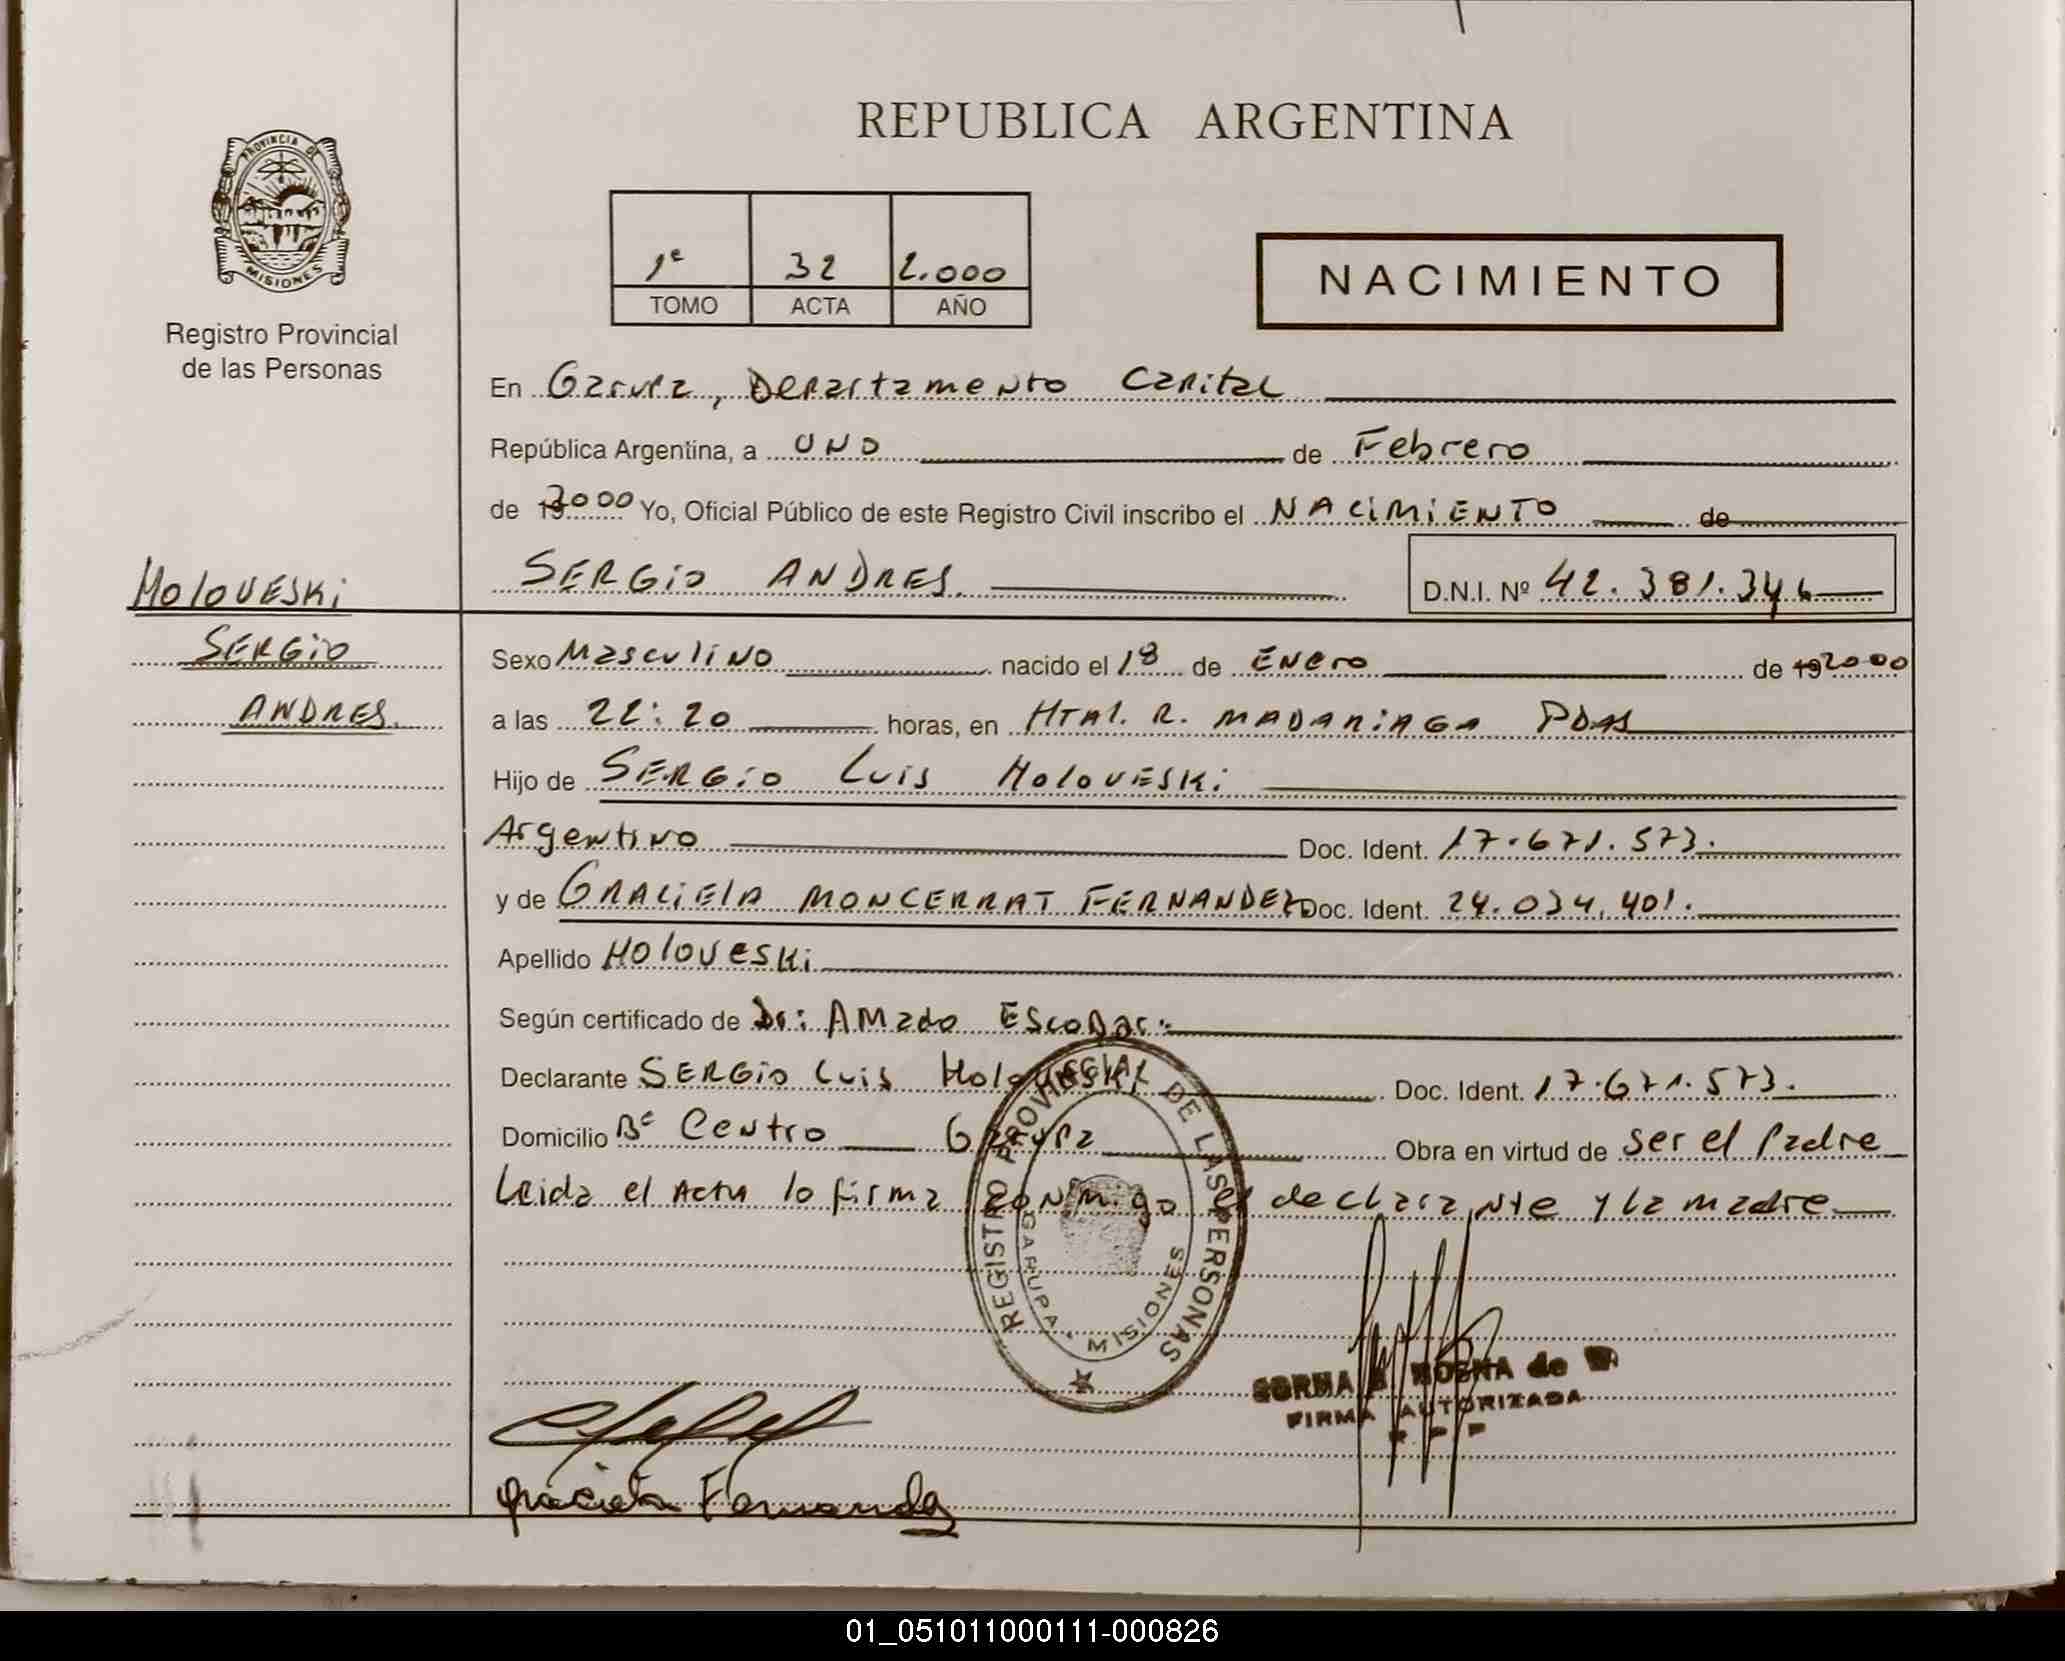 REPUBLICA ARGENTINA
PROVINCIA DE
MISIONES
Registro Provincial
de las Personas
1º 32 2.000
TOMO ACTA AÑO
NACIMIENTO
En Garupa, Departamento Capital
República Argentina, a UNO de Febrero
de 2000 Yo, Oficial Público de este Registro Civil inscribo el NACIMIENTO de
SERGIO ANDRES. D.N.I. Nº 42.381.346
HOLOVESKI
SERGIO
ANDRES.
Sexo Masculino nacido el 18 de Enero de 19 2000
a las 22:20 horas, en Htal. R. MADARIAGA PDAS
Hijo de SERGIO Luis HOLOVESKI
Argentino Doc. Ident. 17.671.573.
y de GRACIELA MONCERRAT FERNANDEZ Doc. Ident. 24.034.401.
Apellido HOLOVESKI
Según certificado de Dr: Amado Escobar.
Declarante SERGIO Luis Holoveski Doc. Ident. 17.671.573.
Domicilio Bº Centro Garupa Obra en virtud de ser el Padre
Leida el Acta lo firma conmigo el declarante y la madre
REGISTRO PROVINCIAL DE LAS PERSONAS
GARUPA - MISIONES
de
FIRMA AUTORIZADA
R. P. P
Graciela Fernandez
01_051011000111-000826